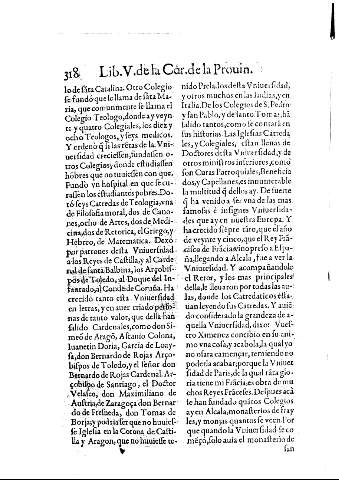 318 Lib. V. de la Cór. de la Prouin.
lo de sãta Catalina. Otro Colegio
se fundó que lo llama de sãta Ma-
ria, que comunmente se llama el
Colegio Teologo, donde a y veyn
te y quatro Colegiales, los diez y
ocho Teologos, y seys medicos.
Y ordenò q̃ si las rẽtas de la Vni-
uersidad creciessen, fundassen o-
tros Colegios, donde estudiassen
hõbres que no tuuiessen con que.
Fundò vn hospital en que se cu-
rassen los estudiantes pobres. Do-
tò seys Catredas de Teologia, vna
de Filosofia moral, dos de Cano-
nes, ocho de Artes, dos de Medi-
cina, dos de Retorica, el Griego, y
Hebreo, de Matematica. Dexò
por patrones desta Vniuersidad
a los Reyes de Castilla, y al Carde
nal de santa Balbina, los Arçobis-
pos de Toledo, al Duque del In-
fantado, al Conde de Coruña. Ha
crecido tanto esta Vniuersidad
en letras, y en auer criado perso-
nas de tanto valor, que della han
salido Cardenales, como don Si-
meõ de Aragõ, Ascanio Colona,
Iuanetin Doria, Garcia de Loay-
sa, don Bernardo de Rojas Arço-
bispos de Toledo, y el señor don
Bernardo de Rojas Cardenal. Ar
çobispo de Santiago, el Doctor
Velasco, don Maximiliano de
Austria, de Zaragoça don Bernar
do de Fresneda, don Tomas de
Borja, y podria ser que no huuies-
se Iglesia en la Corona de Casti-
lla y Aragon, que no huuiesse te-
nido Prelados desta Vniuersidad,
y otros muchos en las Indias, y en
Italia. De los Colegios de S. Pedro
y san Pablo, y de santo Tomas, hã
salido tantos, como se contarà en
sus historias. Las Iglesias Catreda
les, y Colegiales, estan llenas de
Doctores desta Vniuersidad, y de
otros ministros inferiores, como
son Curas Parroquiales, Benefi-
dos, y Capellanes, es innumerable
la multitud q̃ dellos ay. De suerte
q̃ ha venido a ser vna de las mas
famosas è insignes Vniuersida-
des que ay en nuestra Europa. Y
ha crecido siẽpre tãto, que el año
de veynte y cinco, que el Rey Frã
cisco de Frãcia vino preso a Espa
ña, llegando a Alcala, fue a ver la
Vniuersidad. Y acompañandolo
el Retor, y los mas principales
della, le lleuaron por todas las au-
las, donde los Catredaticos esta-
uan leyendo sus Catredas. Y auiẽ
do considerado la grandeza de a-
quella Vniuersidad, dixo: Vues-
tro Ximenez concibio en su ani-
mo vna cosa, y acabola, la qual yo
no osara començar, temiendo no
poderla acabar; porque la Vniuer
sidad de Paris, de la qual tãta glo-
ria tiene mi Frãcia, es obra de mu
chos Reyes Frãceses. Despues acà
se han fundado quãtos Colegios
ay en Alcala, monasterios de fray
les, y monjas quantos se veen Por
que quando la Vniuersidad se co
mẽçó, solo auia el monasterio de
san